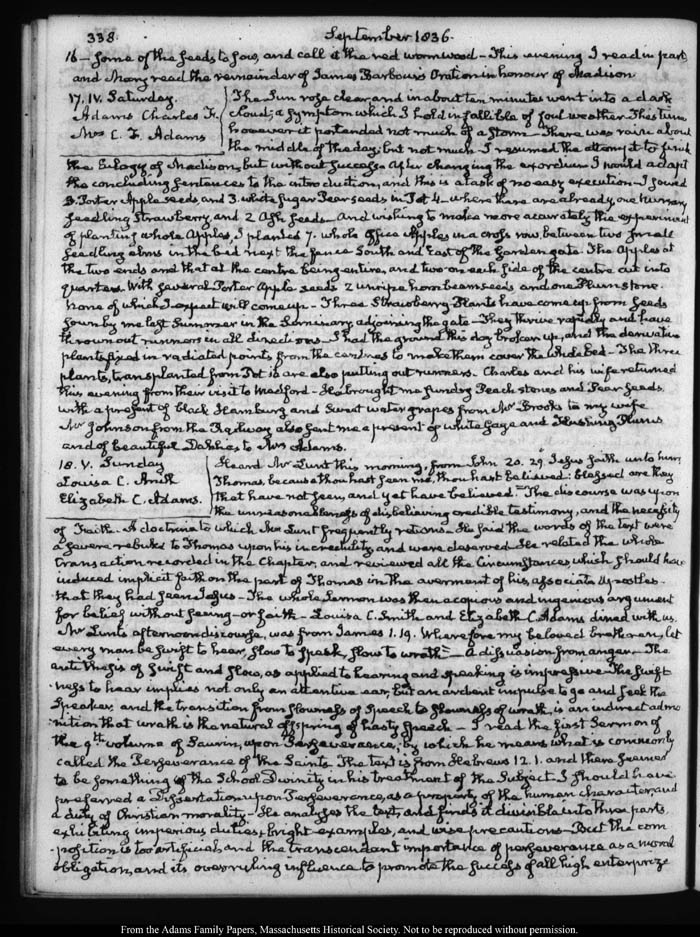 338.
September 1836.
16 — some of the seeds to sow, and call it the red wormwood — This evening I read in part,
and Mary read the remainder of James Barbour's Oration in honour of Madison
17. IV. Saturday.
Adams Charles F.
Mrs C. F. Adams
The Sun rose clear, and in about ten minutes went into a dark
cloud; a symptom which I hold infallible of foul weather. This time
however it portended not much of a storm — There was rain about
the middle of the day, but not much. I resumed the attempt to finish
the Eulogy of Madison, but without success. After changing the exordium I would adapt
the concluding sentences to the introduction, and this is a task of no easy execution — I sowed
3. Porter Apple seeds and 3. white sugar Pear seeds in Pot 4. where there are already, one Nursery
seedling Strawberry and 2 Ash seeds — And wishing to make more accurately the experiment
of planting whole Apples, I planted 7. whole Apples in a cross row, between two small
seedling elms in the bed next the fence South and East of the Garden gate. The Apples at
the two ends and that at the centre being entire, and two on each side of the centre cut into
quarters. With several Porter Apple seeds 2 unripe hornbeam seeds and one Plum stone.
none of which I expect will come up — Three Strawberry Plants have come up from seeds
sown by me last Summer in the Seminary adjoining the gate — They thrive rapidly and have
thrown out runners in all directions. I had the ground this day broken up, and the derivative
plants fixed in radiated points from the centres to make them cover the whole bed — The three
plants, transplanted from Pot 16 are also putting out runners. Charles and his wife returned
this evening from their visit to Medford — He brought me sundry Peach stones and Pear seeds.
with a present of black Hamburg and Sweet water grapes from Mr Brooks to my wife
Mr Johnson from the Railway also sent me a present of white Gage and Flushing Plums
and of beautiful Dahlias to Mrs Adams.
18. V. Sunday
Louisa C. Smith
Elizabeth C. Adams.
Heard Mr Lunt this morning, from John 20. 29. Jesus saith unto him,
Thomas, because thou hast seen me, thou hast believed: blessed are they
that have not seen, and yet have believed. The discourse was upon
the unreasonableness of disbelieving credible testimony, and the necessity
of Faith. A doctrine to which Mr Lunt frequently returns. He said the words of the text were
a severe rebuke to Thomas upon his incredulity and were deserved. He related the whole
transaction recorded in the Chapter, and reviewed all the Circumstances which should have
induced implicit faith on the part of Thomas in the averment of his associate Apostles.
that they had seen Jesus — The whole Sermon was then a copious and ingenious argument
for belief without seeing — or faith — Louisa C. Smith and Elizabeth C. Adams dined with us.
Mr Lunt's afternoon discourse, was from James 1. 19. Wherefore my beloved brethren, let
every man be swift to hear, slow to speak, slow to wrath — A dissuasion from anger. The
antithesis of swift and slow, as applied to hearing and speaking is impressive. The swift
ness to hear implies not only an attentive ear, but an ardent impulse to go and seek the
speaker, and the transition from slowness of speech to slowness of wrath, is an indirect admo
nition that wrath is the natural offspring of hasty speech — I read the first Sermon of
the 9th volume of Saurin, upon Perseverance; by which he means what is commonly
called the Perseverance of the Saints. The text is from Hebrews 12. 1. and there seemed
to be something of the School Divinity in his treatment of the Subject. I should have
preferred a Dissertation upon Perseverance, as a property of the human character, and
a duty of Christian morality — He analyses the text, and finds it divisible into three parts,
exhibiting imperious duties, bright examples, and wise precautions — But the com
position is too artificial, and the transcendant importance of perseverance as a moral
obligation, and its overruling influence to promote the success of all high enterprize
From the Adams Family Papers, Massachusetts Historical Society. Not to be reproduced without permission.